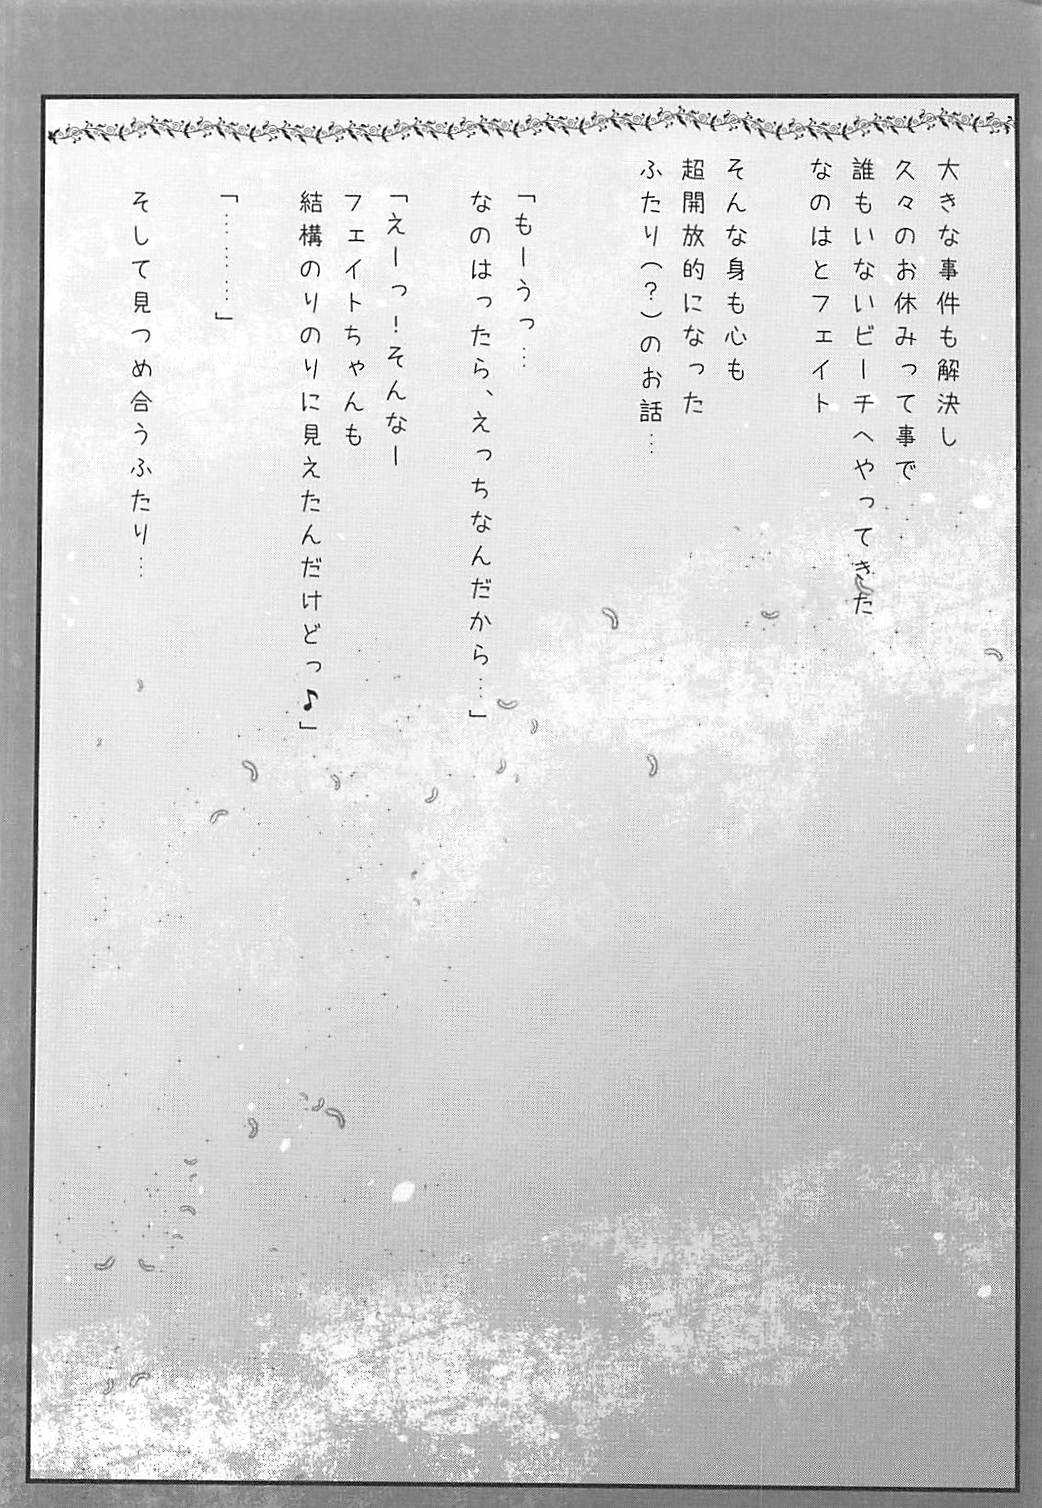 大きな事件も解決し
久々のお休みって事で
誰もいないビーチへやってきた
なのはとフェイト
そんな身も心も
超開放的になった
ふたり(?)のお話…
「もーうっ…
なのはったら、えっちなんだから…」
「えーっ!そんなー
フェイトちゃんも
結構のりのりに見えたんだけどっ♪」
「………」
そして見つめ合うふたり…